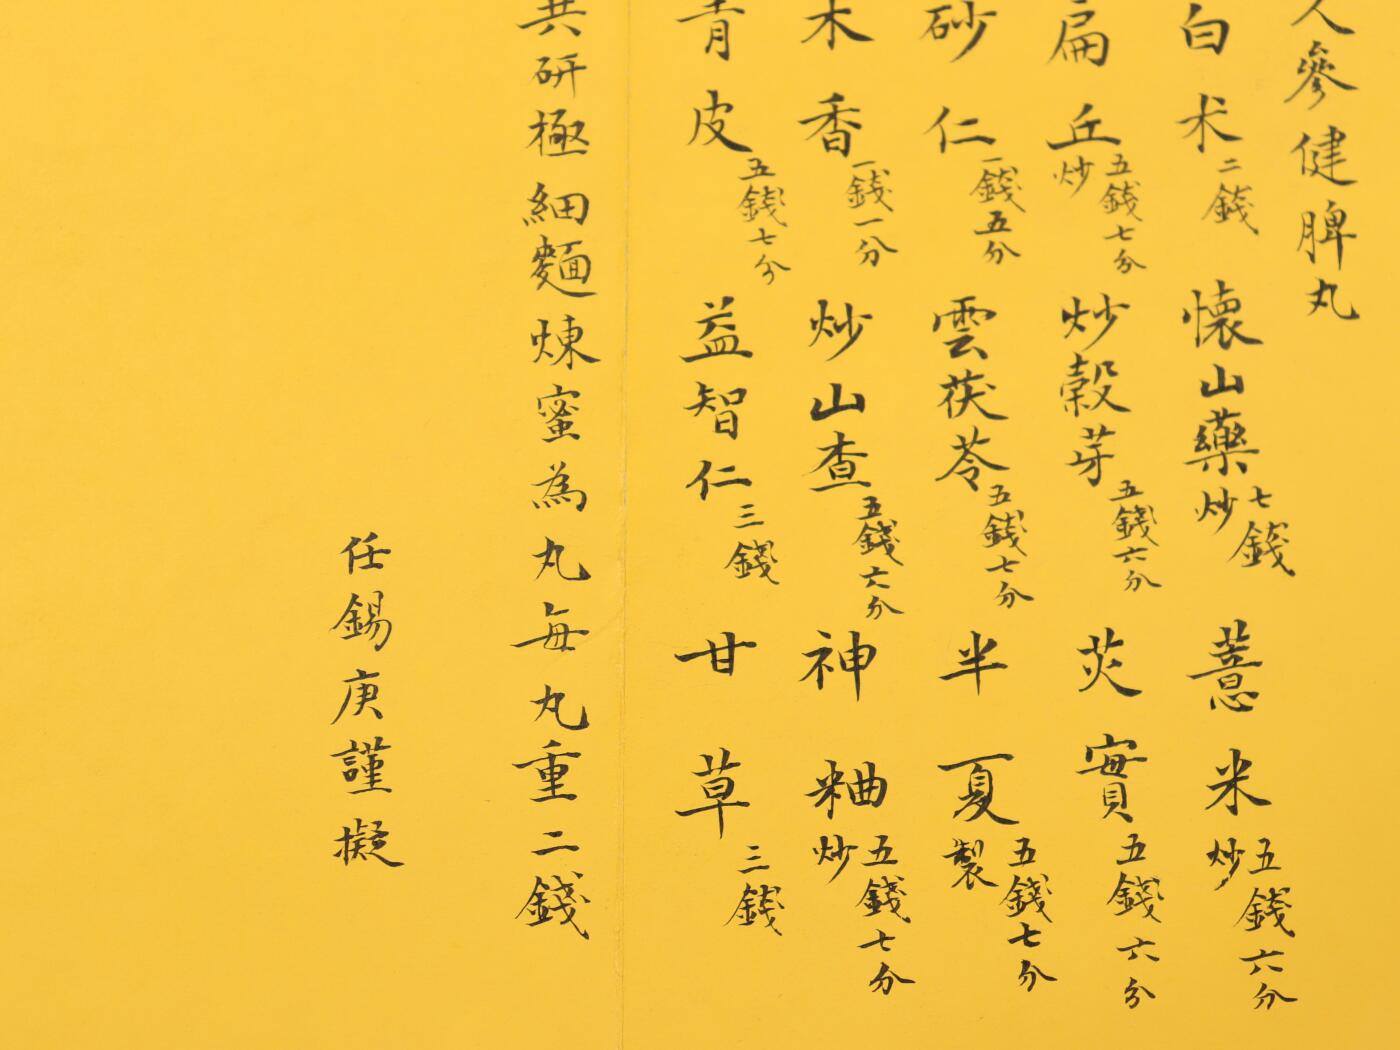 人參健脾丸
白朮二錢 懷山藥炒七錢 薏米炒五錢六分
扁丘炒五錢七分 炒穀芽五錢六分 芡實五錢六分
砂仁一錢五分 雲茯苓五錢七分 半夏製五錢七分
木香一錢一分 炒山查五錢六分 神粬炒五錢七分
青皮五錢七分 益智仁三錢 甘草三錢
共研極細麵煉蜜為丸每丸重二錢
任錫庚謹擬